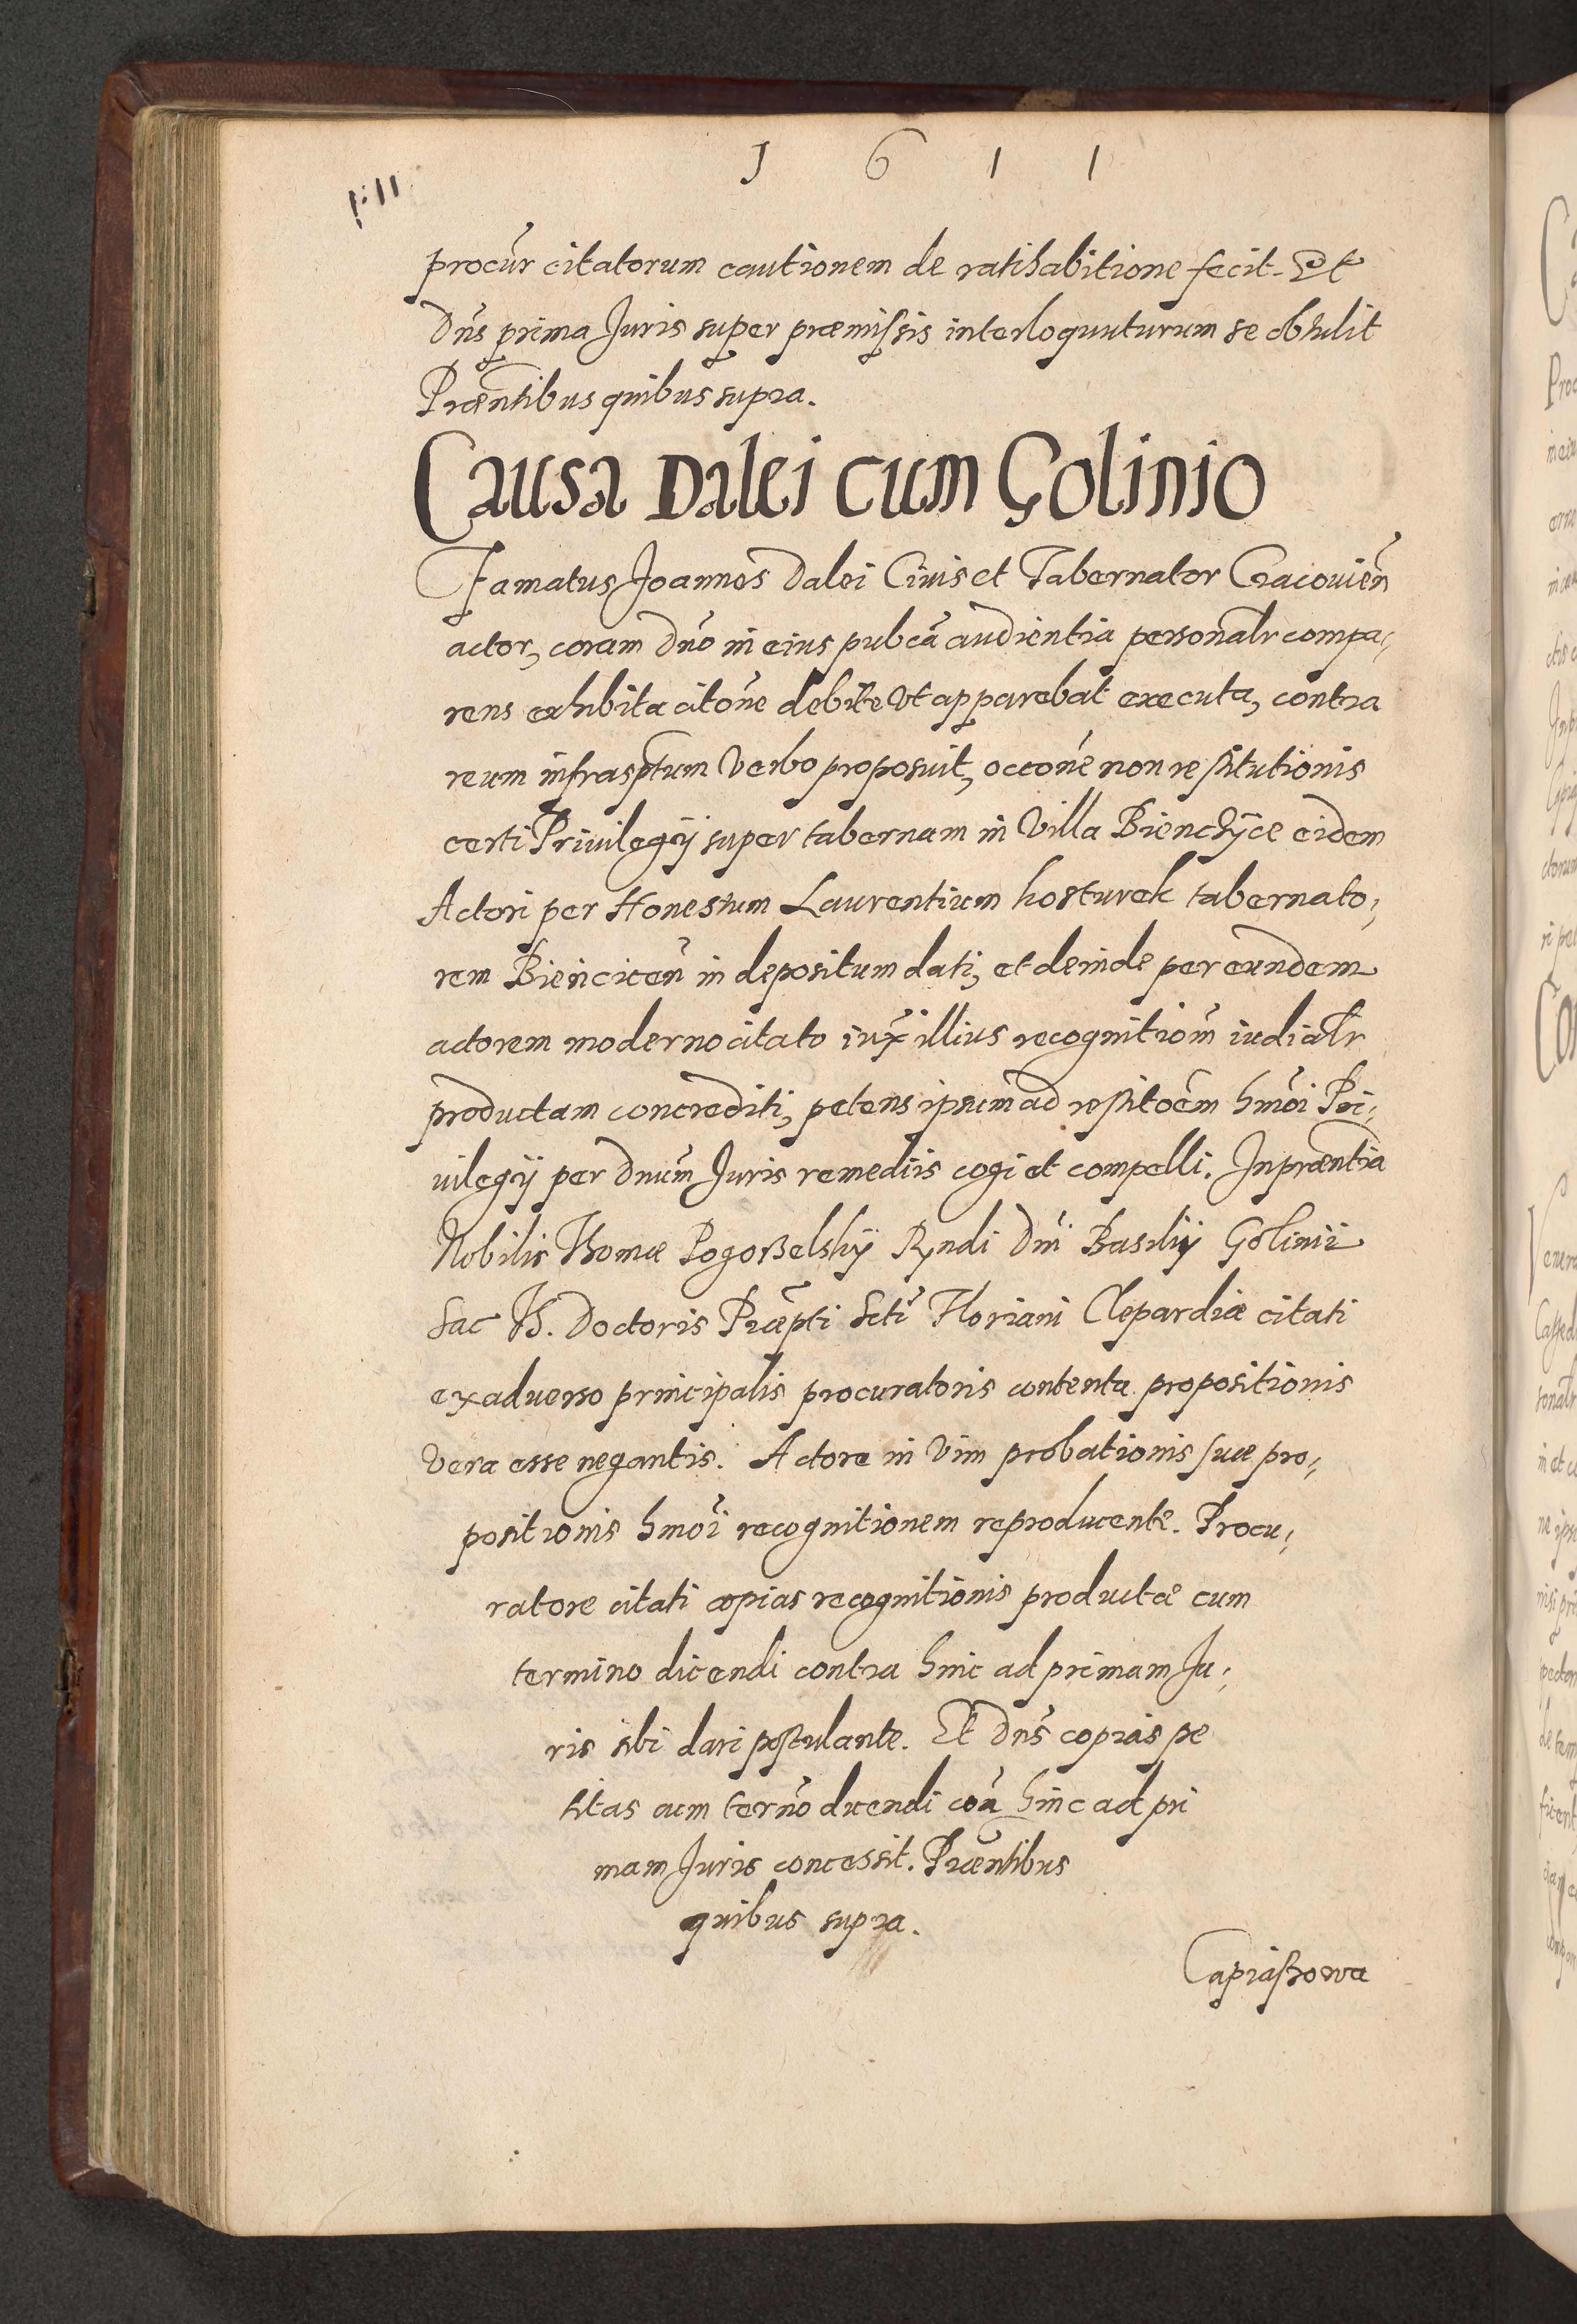 1 6 1 1
procur̃ citatorum cautionem de ratihabitione fecit. Et
Dns̃ prima Juris super præmissis interloquuturum se obtulit
Præntibus quibus supra.
Causa Dalei cum Golinio
Famatus Joannes Dalei Ciuis et Tabernator Cracouien̄
actor, coram Dño in eius pubca audientia personalr compa¸
rens exhibita citoñe debite vt apparebat executa, contra
reum infrasptum verbo proposuit, occoñe non restitutionis
certi Priuilegÿ super tabernam in Villa Bienczÿce eidem
Actori per Honestum Laurentium kosturek tabernato¸
rem Biencicen̄ in depositum dati, et deinde per eundem
actorem moderno citato iux̃ illius recognitiom̃ iudialr
productam concrediti, petens ipsum ad restitoẽm hmoĩ Pri¸
uilegÿ per Dnum̃ Juris remediis cogi et compelli. In præntia
Nobilis Thomæ Pogorzelskÿ Rndi Dni Basilÿ Golinii
Sac Th. Doctoris Præpti Scti Floriani Clepardiæ citati
ex aduerso principalis procuratoris contenta propositionis
vera esse negantis. Actore in vim probationis suæ pro¸
positionis hmoĩ recognitionem reproducente. Procu¸
ratore citati copias recognitionis productæ cum
termino dicendi contra hinc ad primam Ju¸
ris sibi dari postulante. Et Dns̃ copias pe
titas cum terño dicendi coñ hinc ad pri
mam Juris concessit. Præntibus
quibus supra.
Capiaszowa